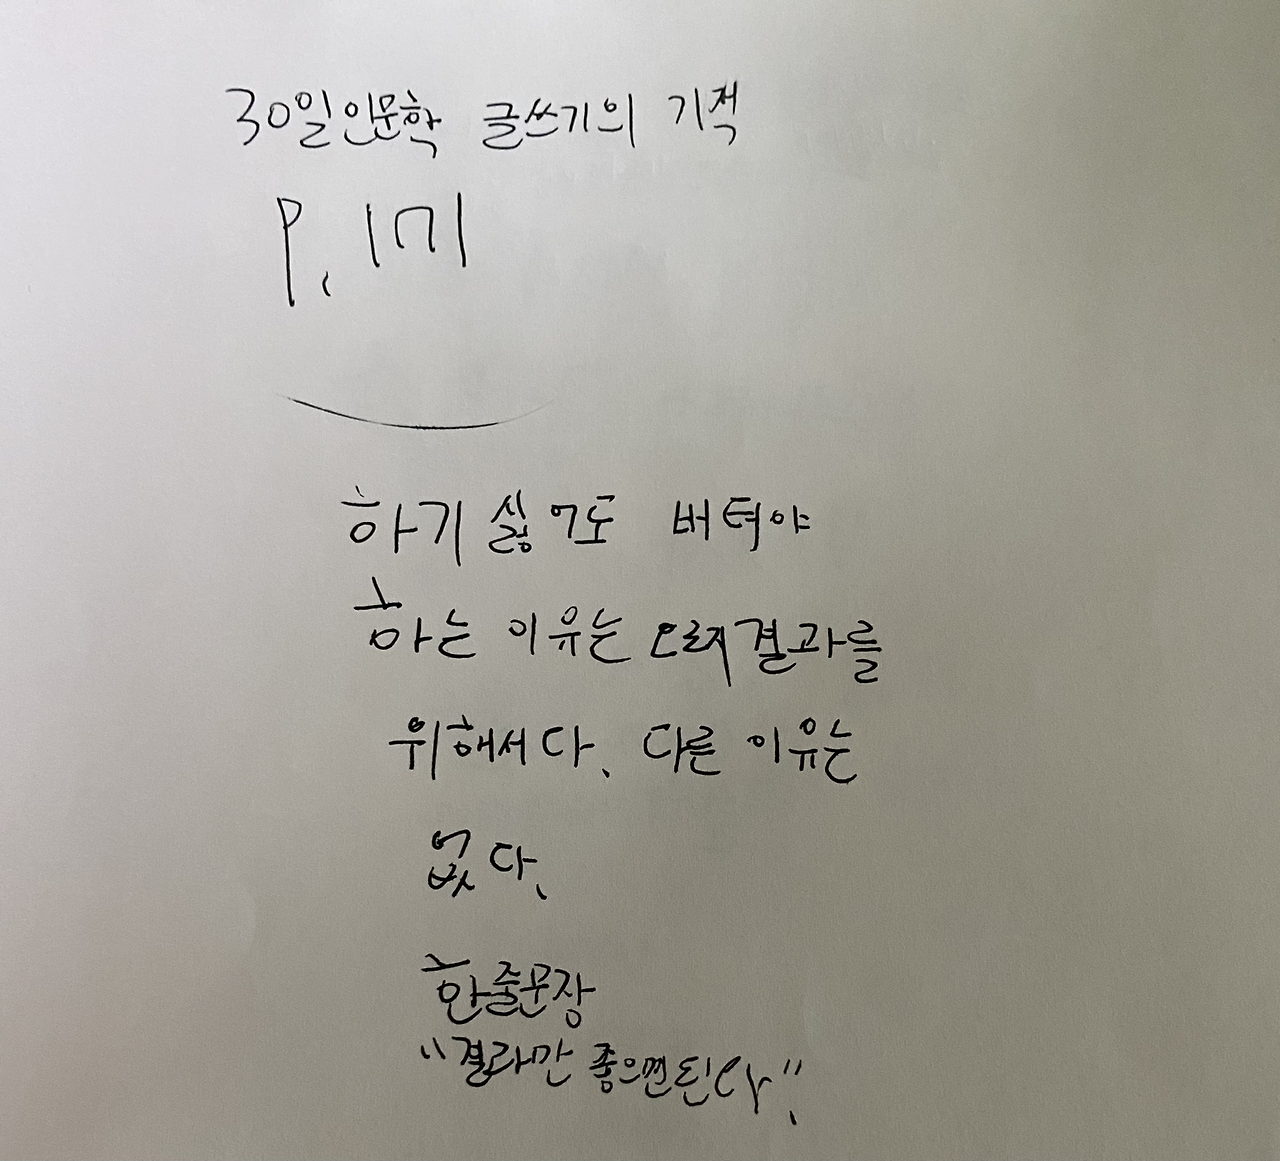 30일인문학 글쓰기의 기적
P. 171
하기 싫어도 버텨야
하는 이유는 오로지 결과를
위해서다. 다른 이유는
없다.
한줄문장
"결과만 좋으면된다".